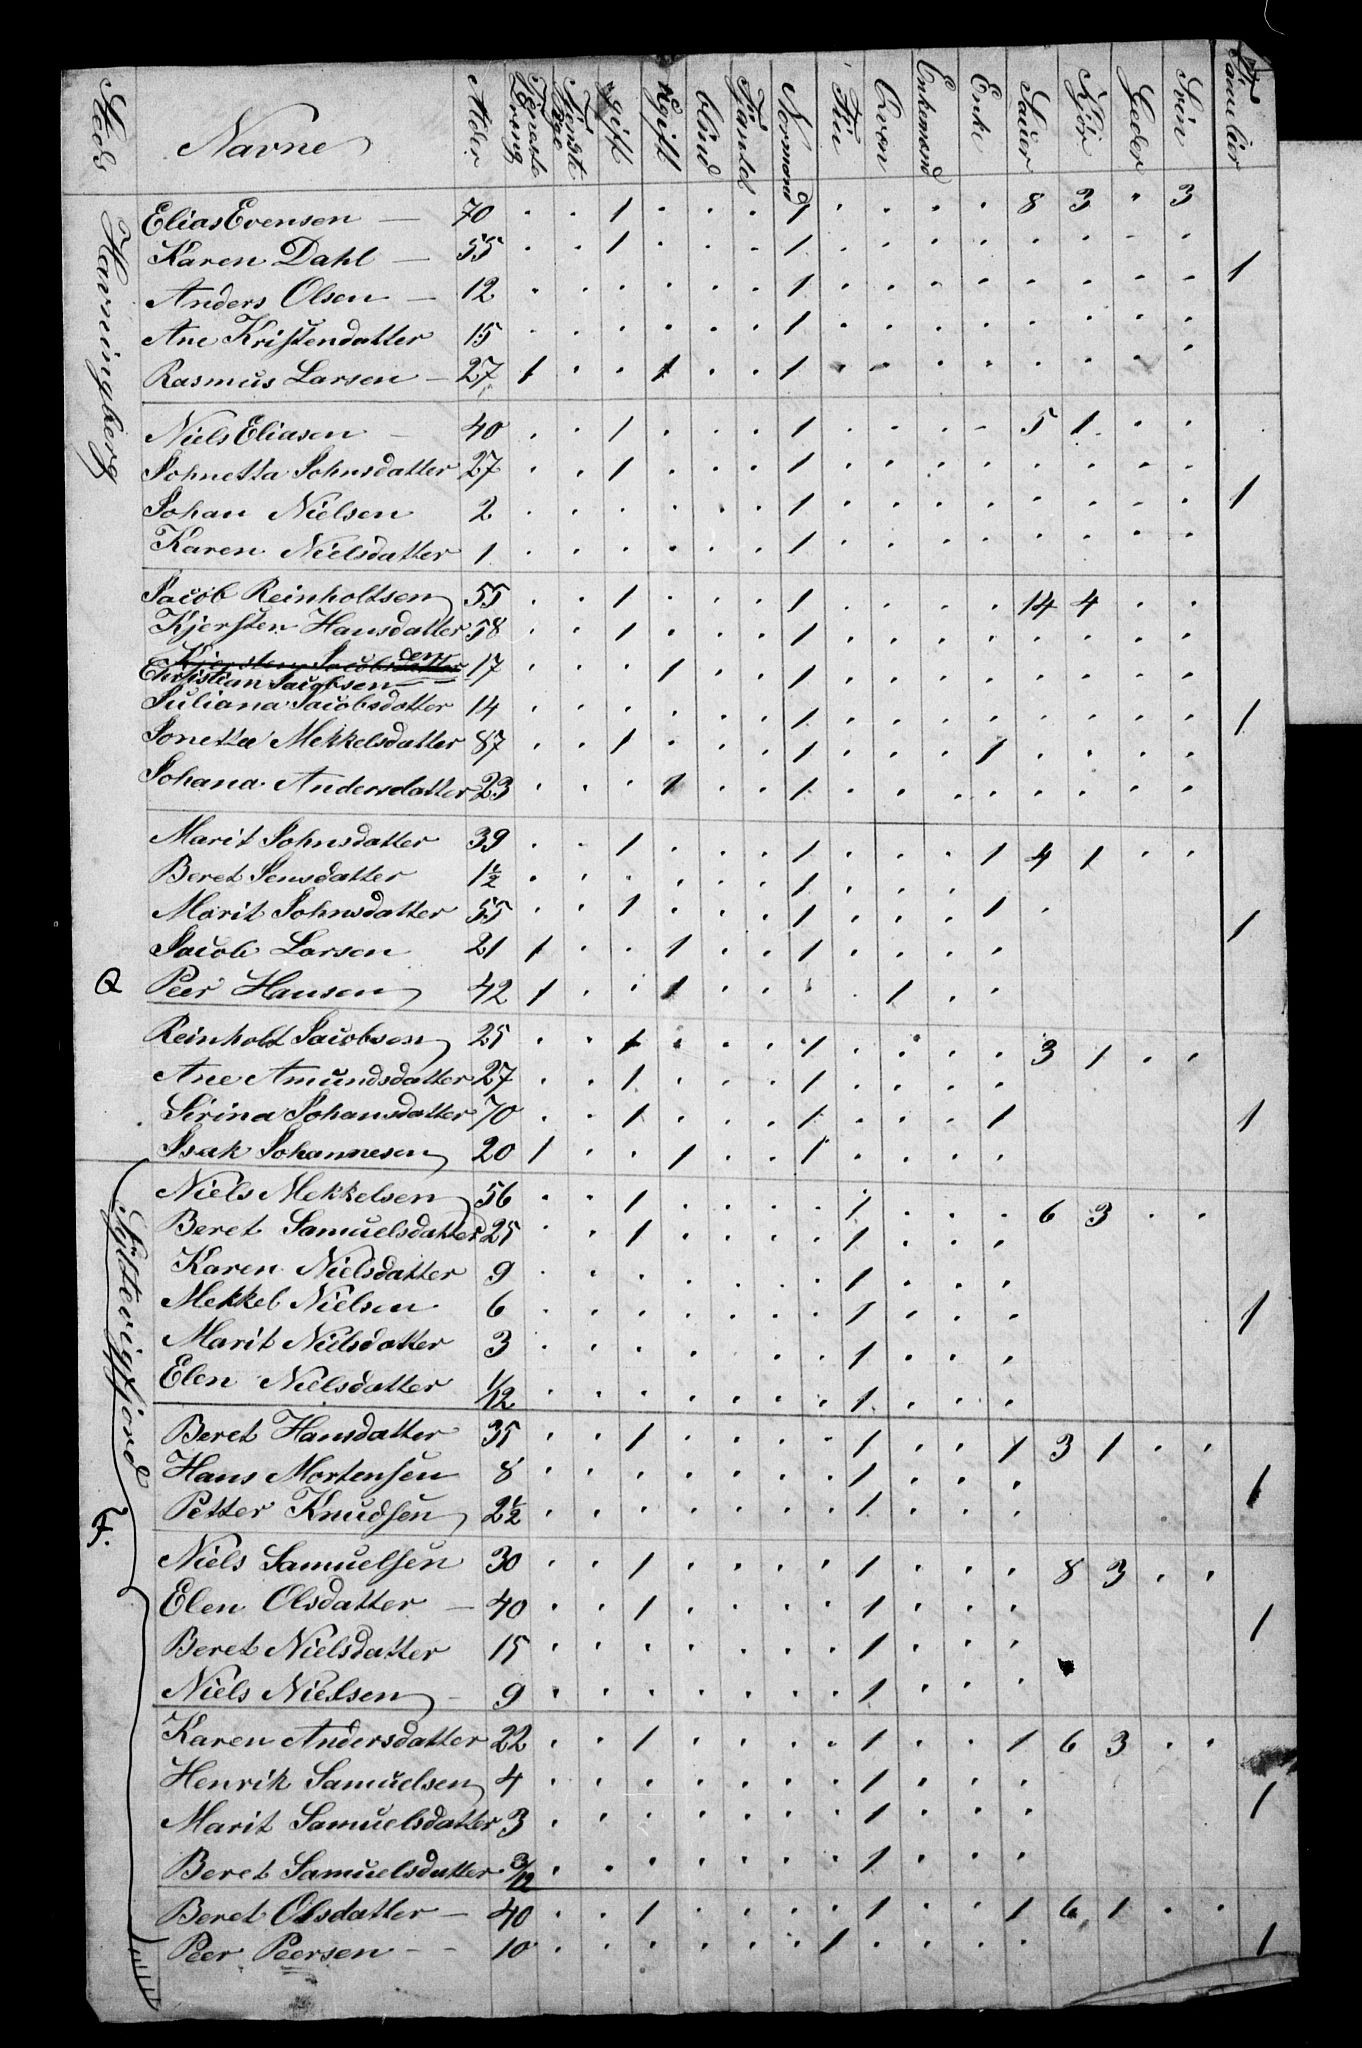 Steds Navne Alder Tieneste Dreng Tieneste Pige Gift Ugift blind Normand Fin Qvæn Enkemand Enke Sauer Kjör Geder Svin Familier
Havningberg
Elias Evensen — 70 . . 1 . . . 1 . . . . 8 3 . 3
Karen Dahl — 55 . . 1 . . . 1 . . . . . . . . 1
Anders Olsen — 12 . . . . . . 1 . . . . . . . .
Ane Kristendatter 15 . . . . . . 1 . . . . . . . .
Rasmus Larsen — 27 1 . . 1 . . 1 . . . . . . . .
Niels Eliasen — 40 . . 1 . . . 1 . . . . 5 1 . .
Johnetta Johnsdatter 27 . . 1 . . . 1 . . . . . . . .
Johan Nielsen 2 . . . . . . 1 . . . . . . . . 1
Karen Nielsdatter 1 . . . . . . 1 . . . . . . . .
Jacob Reinholtsen 55 . . 1 . . . 1 . . . . 14 4 . .
Kjersten Hansdatter 58 . . 1 . . . 1 . . . . . . . .
Christian Jacobsen 17 . . . 1 . . 1 . . . . . . . .
Juliana Jacobsdatter 14 . . . . . . 1 . . . . . . . . 1
Jonetta Mekkelsdatter 87 . . 1 . . . 1 . . . 1 . . . .
Johana Andersdatter 23 . . . 1 . . 1 . . . . . . . .
Marit Johnsdatter 39 . . 1 . . . 1 . . . 1 4 1 . .
Beret Jensdatter 1½ . . . . . . 1 . . .
Marit Johnsdatter 55 . . 1 . . . 1 . . . 1 . 1
Jacob Larsen 21 1 . . 1 . . 1 . . . .
Q Peer Hansen 42 1 . . 1 . . . . 1 . .
Reinholt Jacobsen 25 . . 1 . . . 1 . . . . 3 1 . .
Ane Amundsdatter 27 . . 1 . . . 1 . . . .
Sirina Johansdatter 70 . . 1 . . . 1 . . . 1 1
Isak Johannesen 20 1 . . 1 . . 1 . . . .
Syltevigfjord
Niels Mekkelsen 56 . . 1 . . . . 1 . . . 6 3 . .
Beret Samuelsdatter 25 . . 1 . . . . 1 . . .
Karen Nielsdatter 9 . . . . . . . 1 . . .
Mekkel Nielsen 6 . . . . . . . 1 . . . 1
Marit Nielsdatter 3 . . . . . . . 1 . . .
Elen Nielsdatter 1/12 . . . . . . . 1 . . .
Beret Hansdatter 35 . . 1 . . . . 1 . . 1 3 1 . .
Hans Mortensen 8 . . . . . . . 1 . . . 1
F. Petter Knudsen 2½ . . . . . . . 1 . . .
Niels Samuelsen 30 . . 1 . . . . 1 . . . 8 3 . .
Elen Olsdatter — 40 . . 1 . . . . 1 . . . 1
Beret Nielsdatter 15 . . . . . . . 1 . . .
Niels Nielsen — 9 . . . . . . . 1 . . .
Karen Andersdatter 22 . . 1 . . . . 1 . . 1 6 3 . .
Henrik Samuelsen 4 . . . . . . . 1 . . . 1
Marit Samuelsdatter 3 . . . . . . . 1 . . .
Beret Samuelsdatter 3/12 . . . . . . . 1 . . .
Beret Olsdatter — 40 . . 1 . . . . 1 . . 1 6 1 . .
Peer Peersen — 10 . . . . . . 1 . . . . 1